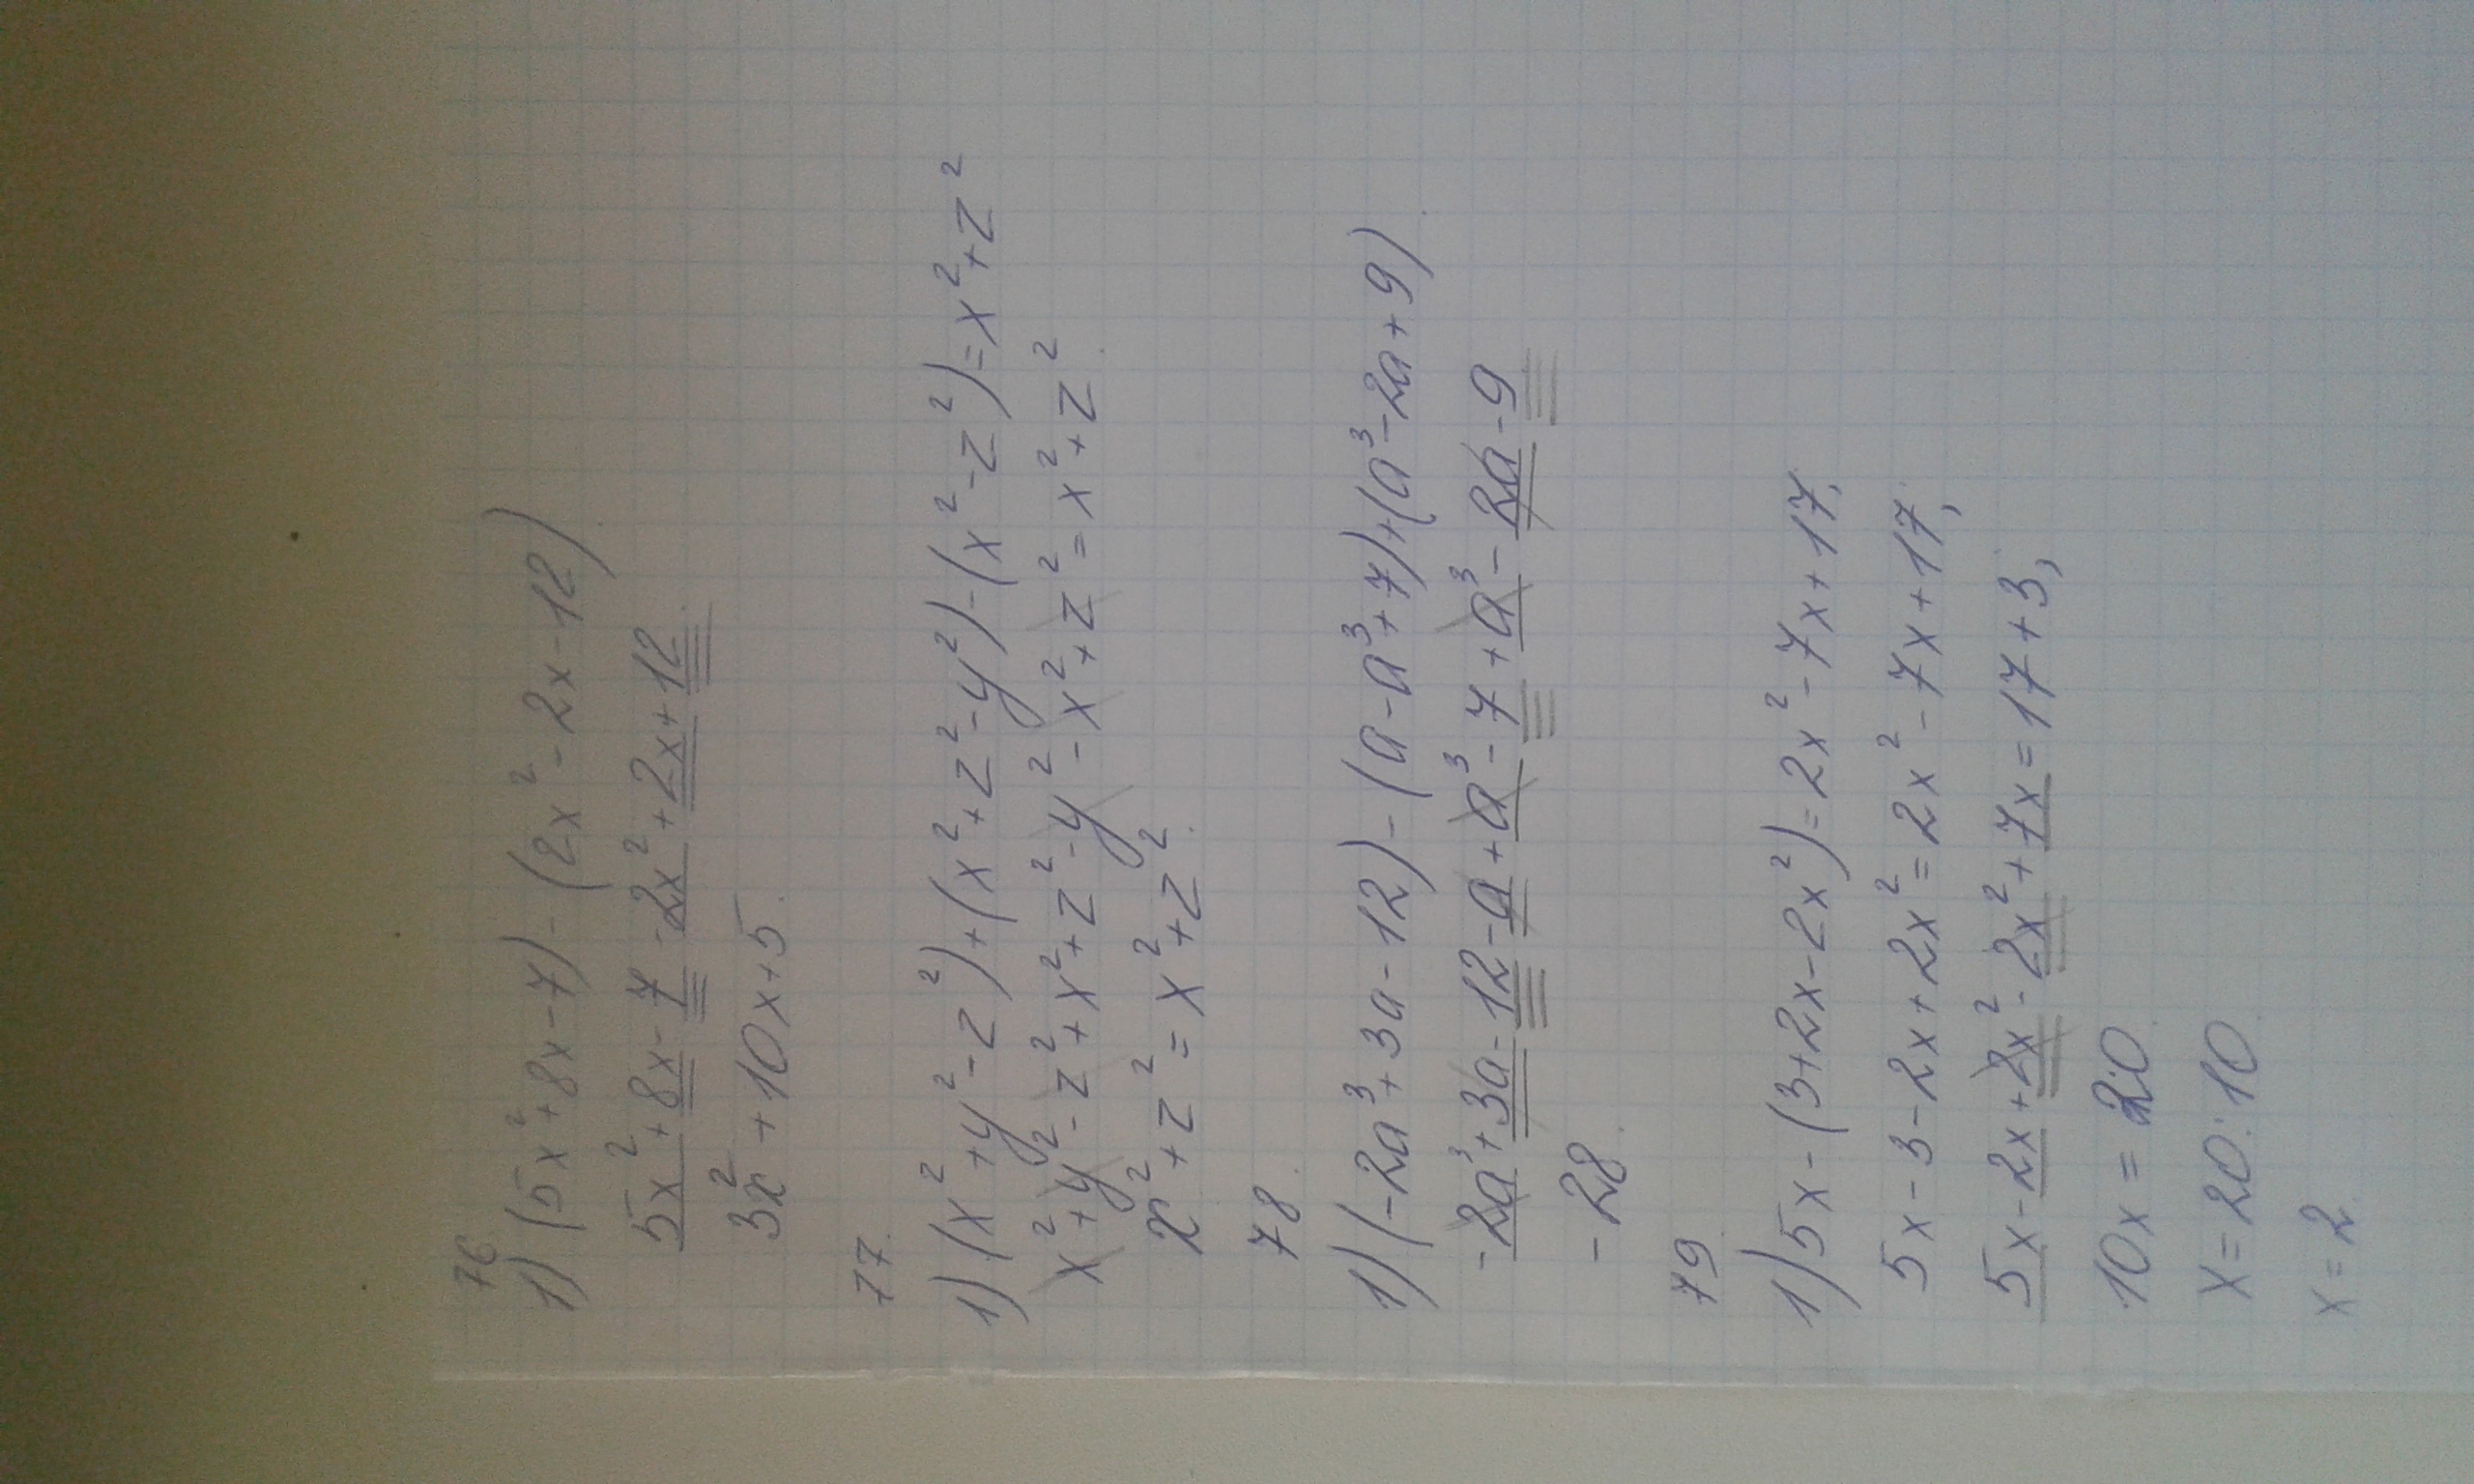 76.
1) (5x²+8x-7)-(2x²-2x-12)
5x²+8x-7-2x²+2x+12
3x²+10x+5.
77.
1) (x²+y²-z²)+(x²+z²-y²)-(x²-z²)=x²+z²
x²+y²-z²+x²+z²-y²-x²+z²=x²+z²
x²+z²=x²+z².
78.
1) (-2a³+3a-12)-(a-a³+7)+(a³-2a+9)
-2a³+3a-12-a+a³-7+a³-2a-9
-28.
79.
1) 5x-(3+2x-2x²)=2x²-7x+17;
5x-3-2x+2x²=2x²-7x+17;
5x-2x+2x²-2x²+7x=17+3;
10x=20
x=20:10
x=2